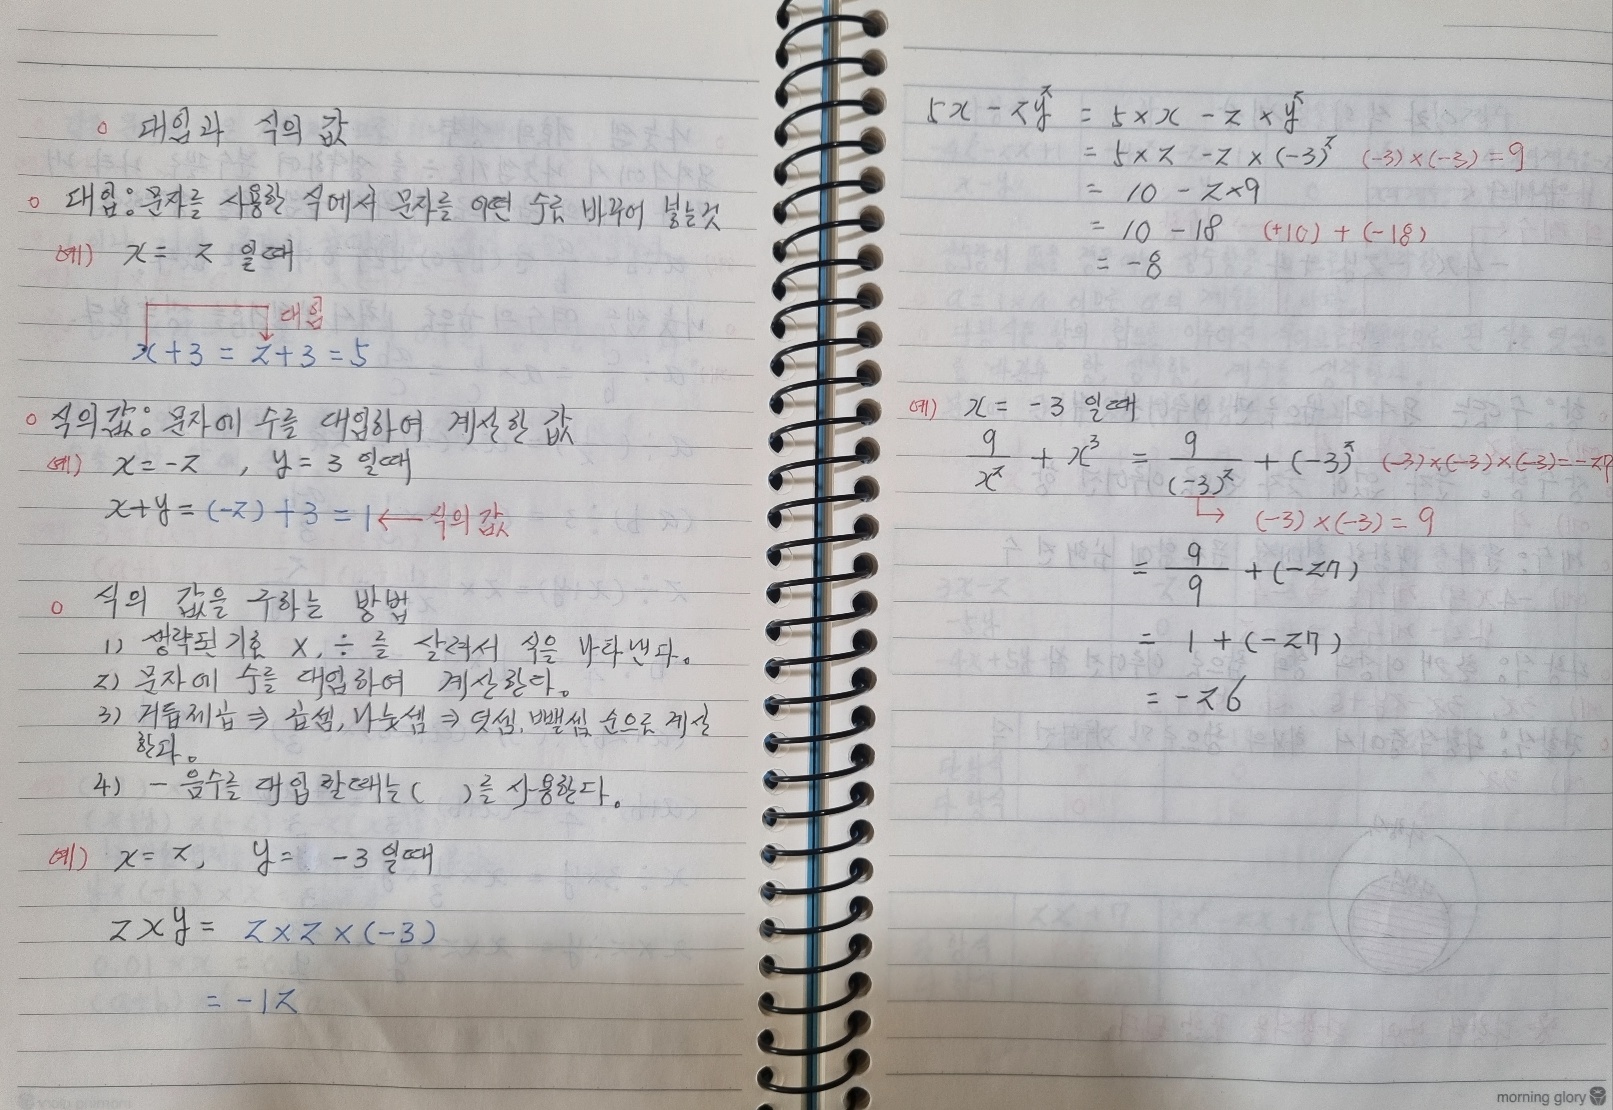 대입과 식의 값
대입: 문자를 사용한 식에서 문자를 어떤 수로 바꾸어 넣는것
예) x = 2 일때
대입
x+3 = 2+3 = 5
식의값: 문자에 수를 대입하여 계산한 값
예) x=-2 , y=3 일때
x+y = (-2)+3 = 1 ← 식의 값
식의 값을 구하는 방법
1) 생략된 기호 ×, ÷ 를 살려서 식을 나타낸다.
2) 문자에 수를 대입하여 계산한다.
3) 거듭제곱 ⇒ 곱셈, 나눗셈 ⇒ 덧셈, 뺄셈 순으로 계산
한다.
4) - 음수를 대입 할때는 ( )를 사용한다.
예) x = 2, y = -3 일때
2xy = 2×2×(-3)
= -12
5x - 2y² = 5×x - 2×y²
= 5×2 - 2×(-3)² (-3)×(-3)=9
= 10 - 2×9
= 10 - 18 (+10) + (-18)
= -8
예) x = -3 일때
9/x² + x³ = 9/(-3)² + (-3)² (-3)×(-3)×(-3)=-27
(-3)×(-3) = 9
= 9/9 + (-27)
= 1 + (-27)
= -26
morning glory